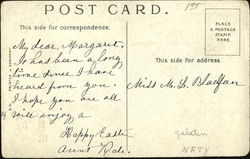 POST CARD.
This side for correspondence.
This side for address.
PLACE
A POSTAGE
STAMP
HERE
My dear Margaret.
It has been a long
time since I have
heard from you.
I hope you are all
enjoy a
Happy Easter
Aunt Kate.
Miss M. L.
NRTY